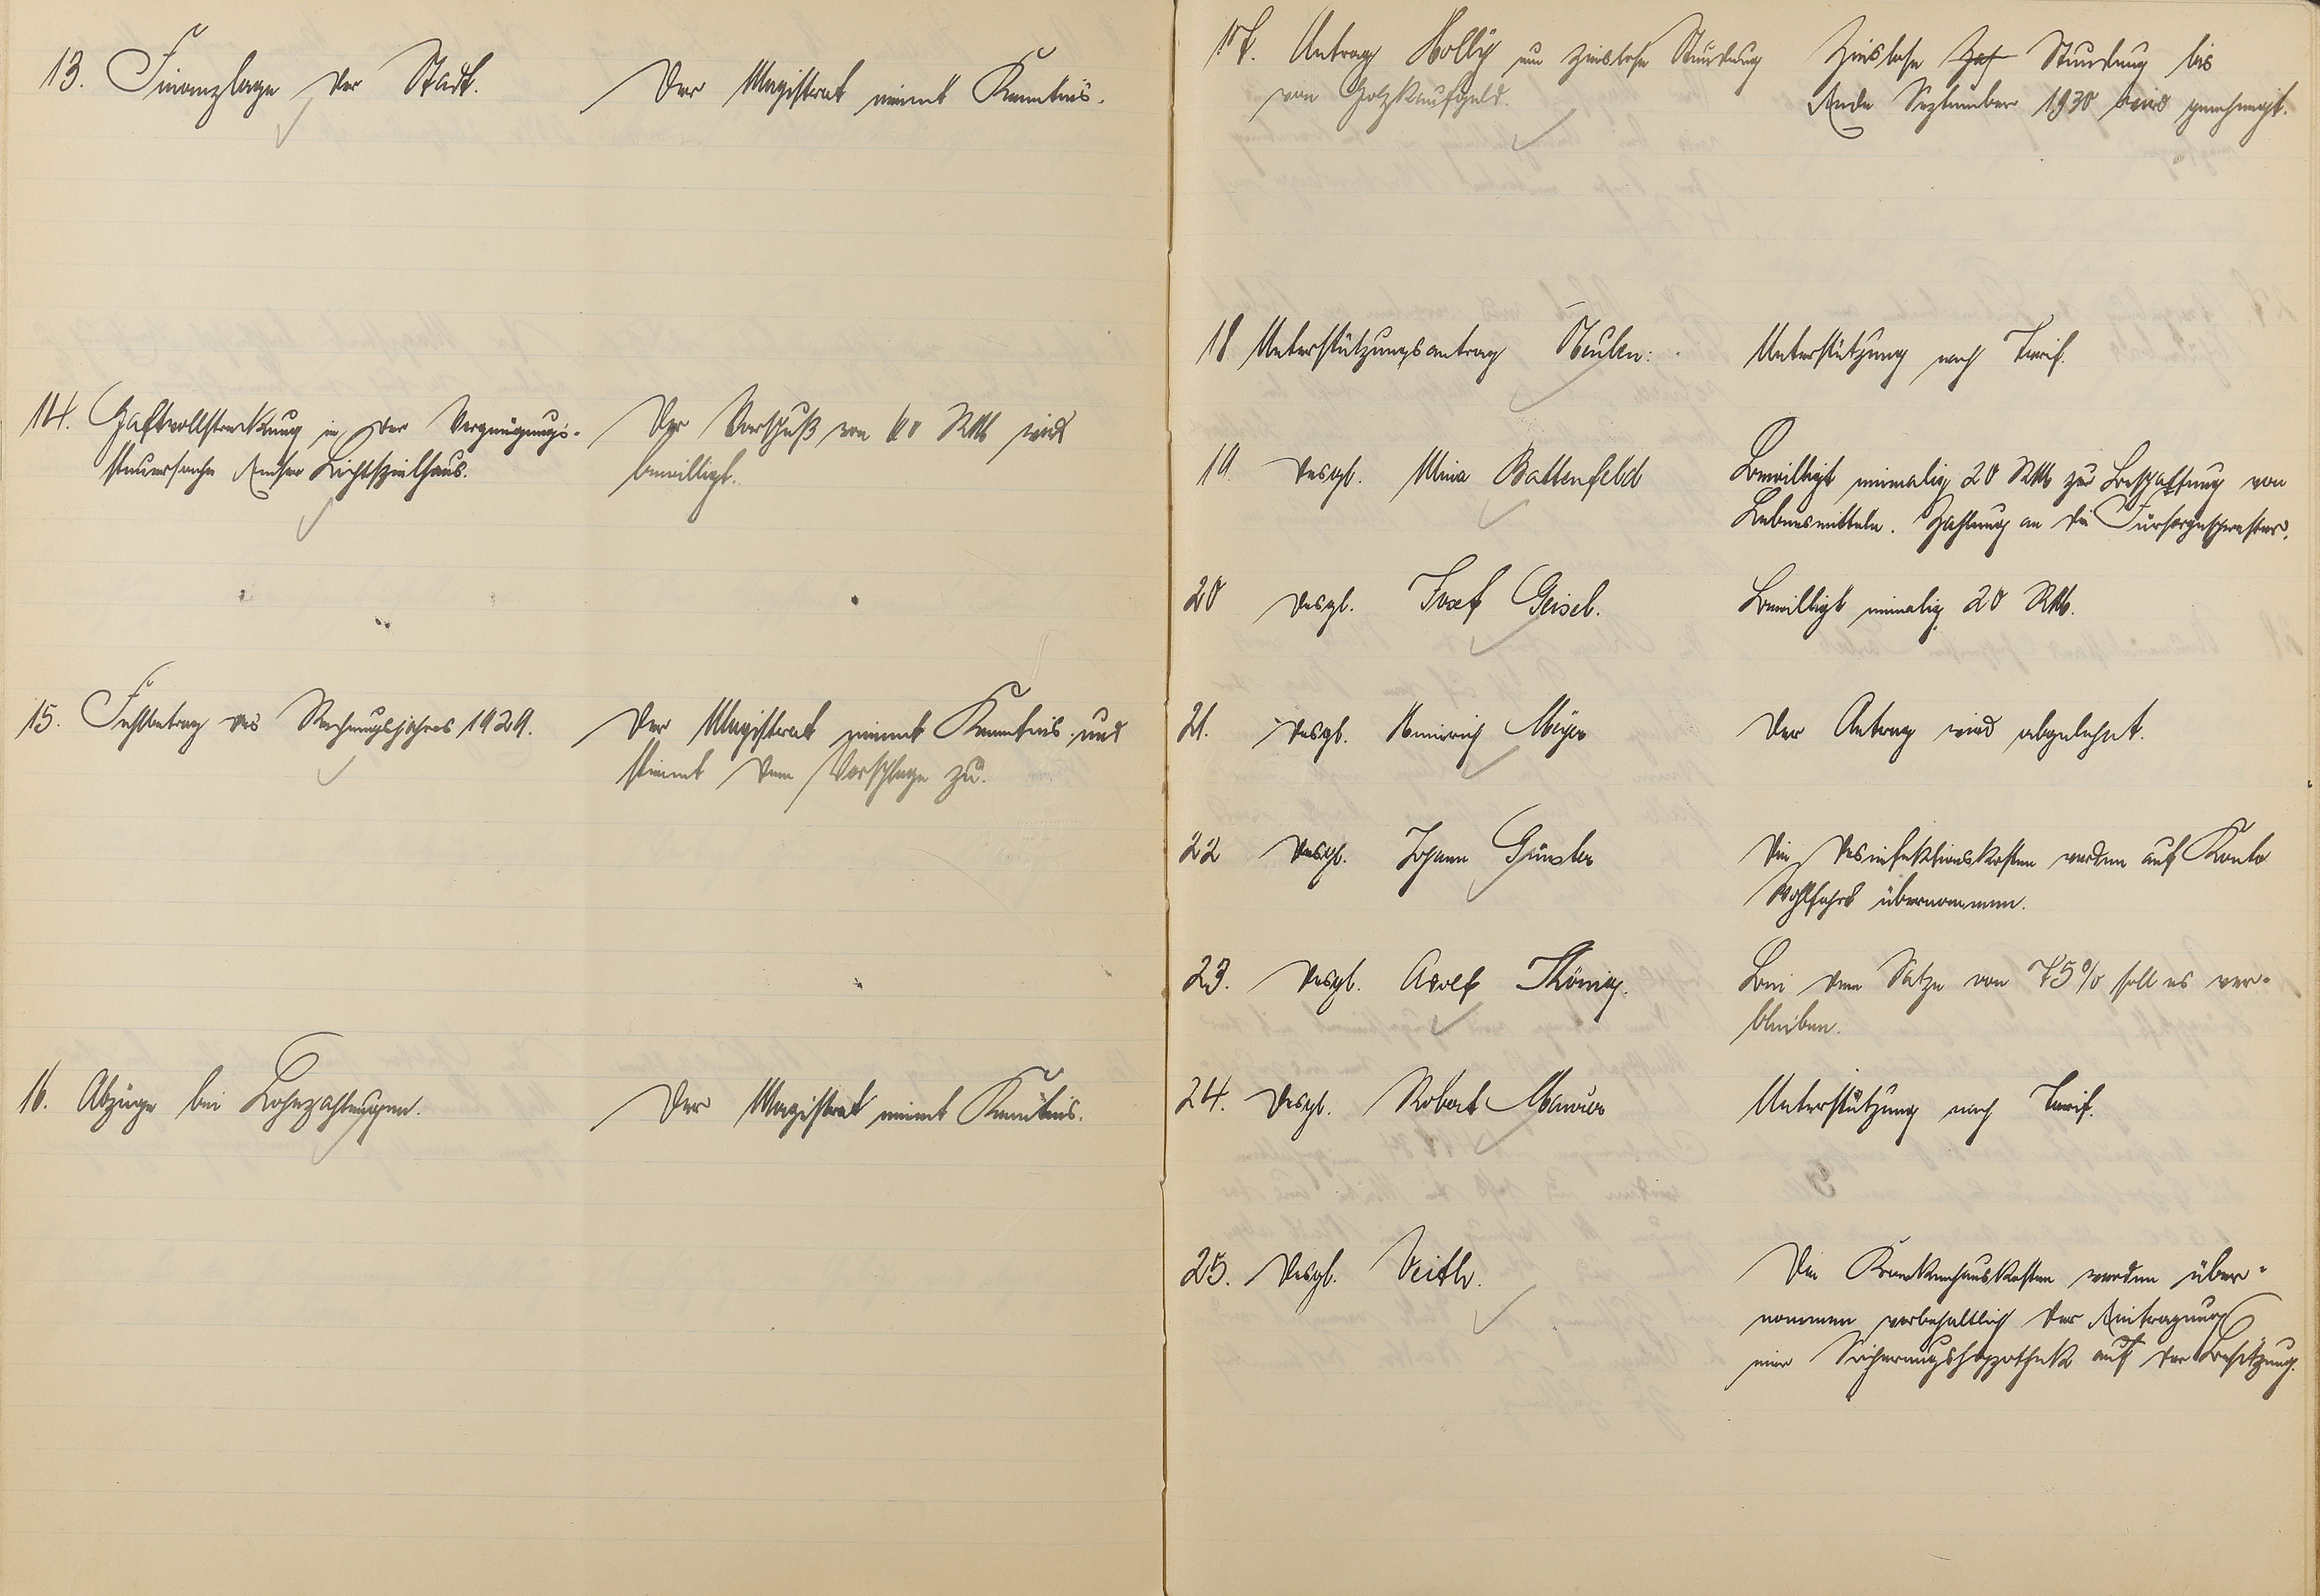 13. Finanzlage der Stadt.
Der Magistrat nimmt Kenntnis.
14. Haftvollstreckung in der Vergnügungs-
steuersache Emser Lichtspielhaus.
Der Vorschuß von 60 RM wird
bewilligt.
15. Fehlbetrag des Rechnungsjahres 1929.
Der Magistrat nimmt Kenntnis und
stimmt dem Vorschlage zu.
16. Abzüge bei Lohnzahlungen.
Der Magistrat nimmt Kenntnis.
17. Antrag Holly um zinslose Stundung
von Holzkaufgeld.
Zinslose Stundung bis
Ende September 1930 wird genehmigt.
18 Unterstützungsantrag
Unterstützung nach Tarif.
19. Desgl. Mina Battenfeld
Bewilligt einmalig 20 RM zur Beschaffung von
Lebensmitteln. Zahlung an die Fürsorgeschwester.
20 Desgl. Josef Geisel.
Bewilligt einmalig 20 RM.
21. Desgl. Heinrich Meyer
Der Antrag wird abgelehnt.
22 Desgl. Johann Günster
Die Desinfektionskosten werden auf Konto
Wohlfahrt übernommen.
23. Desgl. Adolf Thönig.
Bei dem Satze von 75% soll es ver-
bleiben.
24. Desgl. Robert Maurer
Unterstützung nach Tarif.
25. Desgl. Veith.
Die Krankenhauskosten werden über-
nommen vorbehaltlich der Eintragung
einer Sicherungshypothek auf der Besitzung.